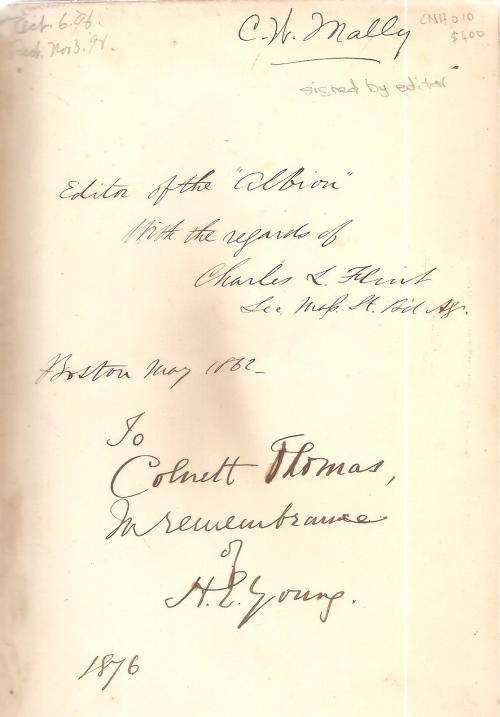 C. W. Mally
CNH 010
$400
Oct. 6. 96.
Nov 3. 98.
signed by editor
Editor of the "Albion"
With the regards of
Charles L. Flint
Sec. Mass. St. Bd. Ag.
Boston May 1862
To
Colnett Thomas,
In remembrance
of
H. E. Young.
1876